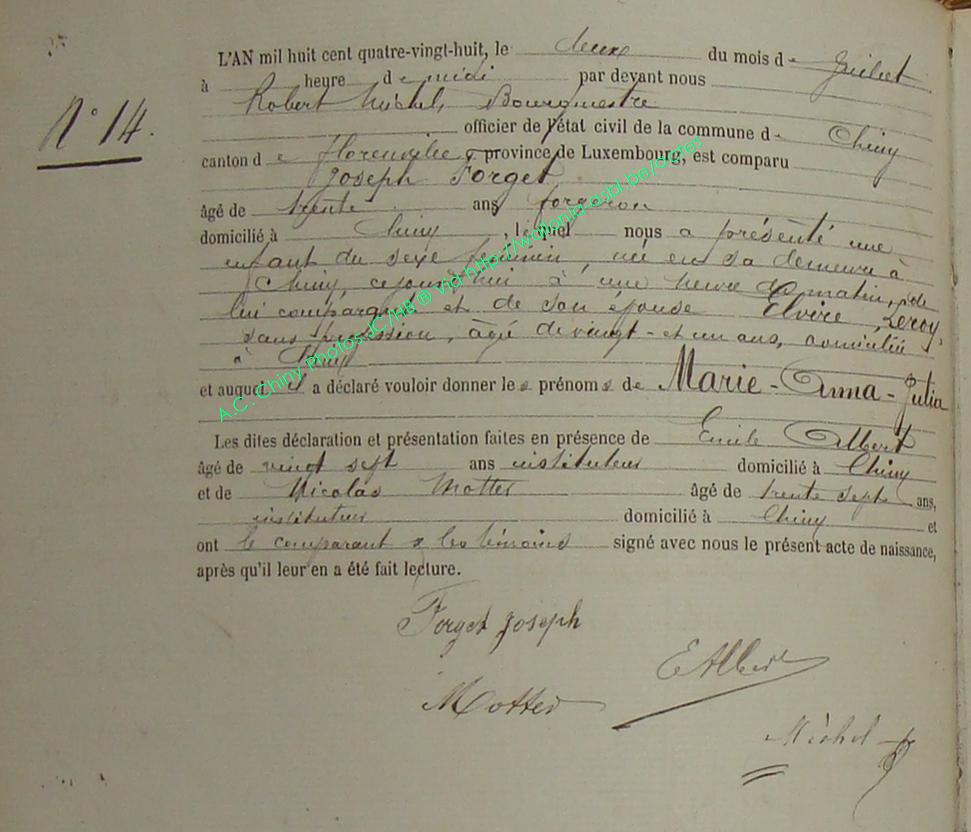 L'AN mil huit cent quatre-vingt-huit, le deux du mois de Juillet
à heure de midi par devant nous
Robert Michel, Bourgmestre
N° 14.
officier de l'état civil de la commune de Chiny
canton de Florenville, province de Luxembourg, est comparu
Joseph Forget
âgé de trente ans forgeron
domicilié à Chiny, lequel nous a présenté une
enfant du sexe féminin, née en sa demeure à
Chiny, cejourd'hui à une heure du matin, de
lui comparant et de son épouse Elvire Leroy,
sans profession, agé de vingt-et un ans, domiciliée
à Chiny
et auquel il a déclaré vouloir donner les prénoms de Marie-Anna-Julia
Les dites déclaration et présentation faites en présence de Emile Albert
âgé de vingt sept ans instituteur domicilié à Chiny
et de Nicolas Motter âgé de trente sept ans,
instituteur domicilié à Chiny et
ont le comparant & les témoins signé avec nous le présent acte de naissance,
après qu'il leur en a été fait lecture.
Forget Joseph
EAlbert
Motter
Michel
A.C. Chiny Photos JC/HB ® via http://wallonia-asbl.be/postes